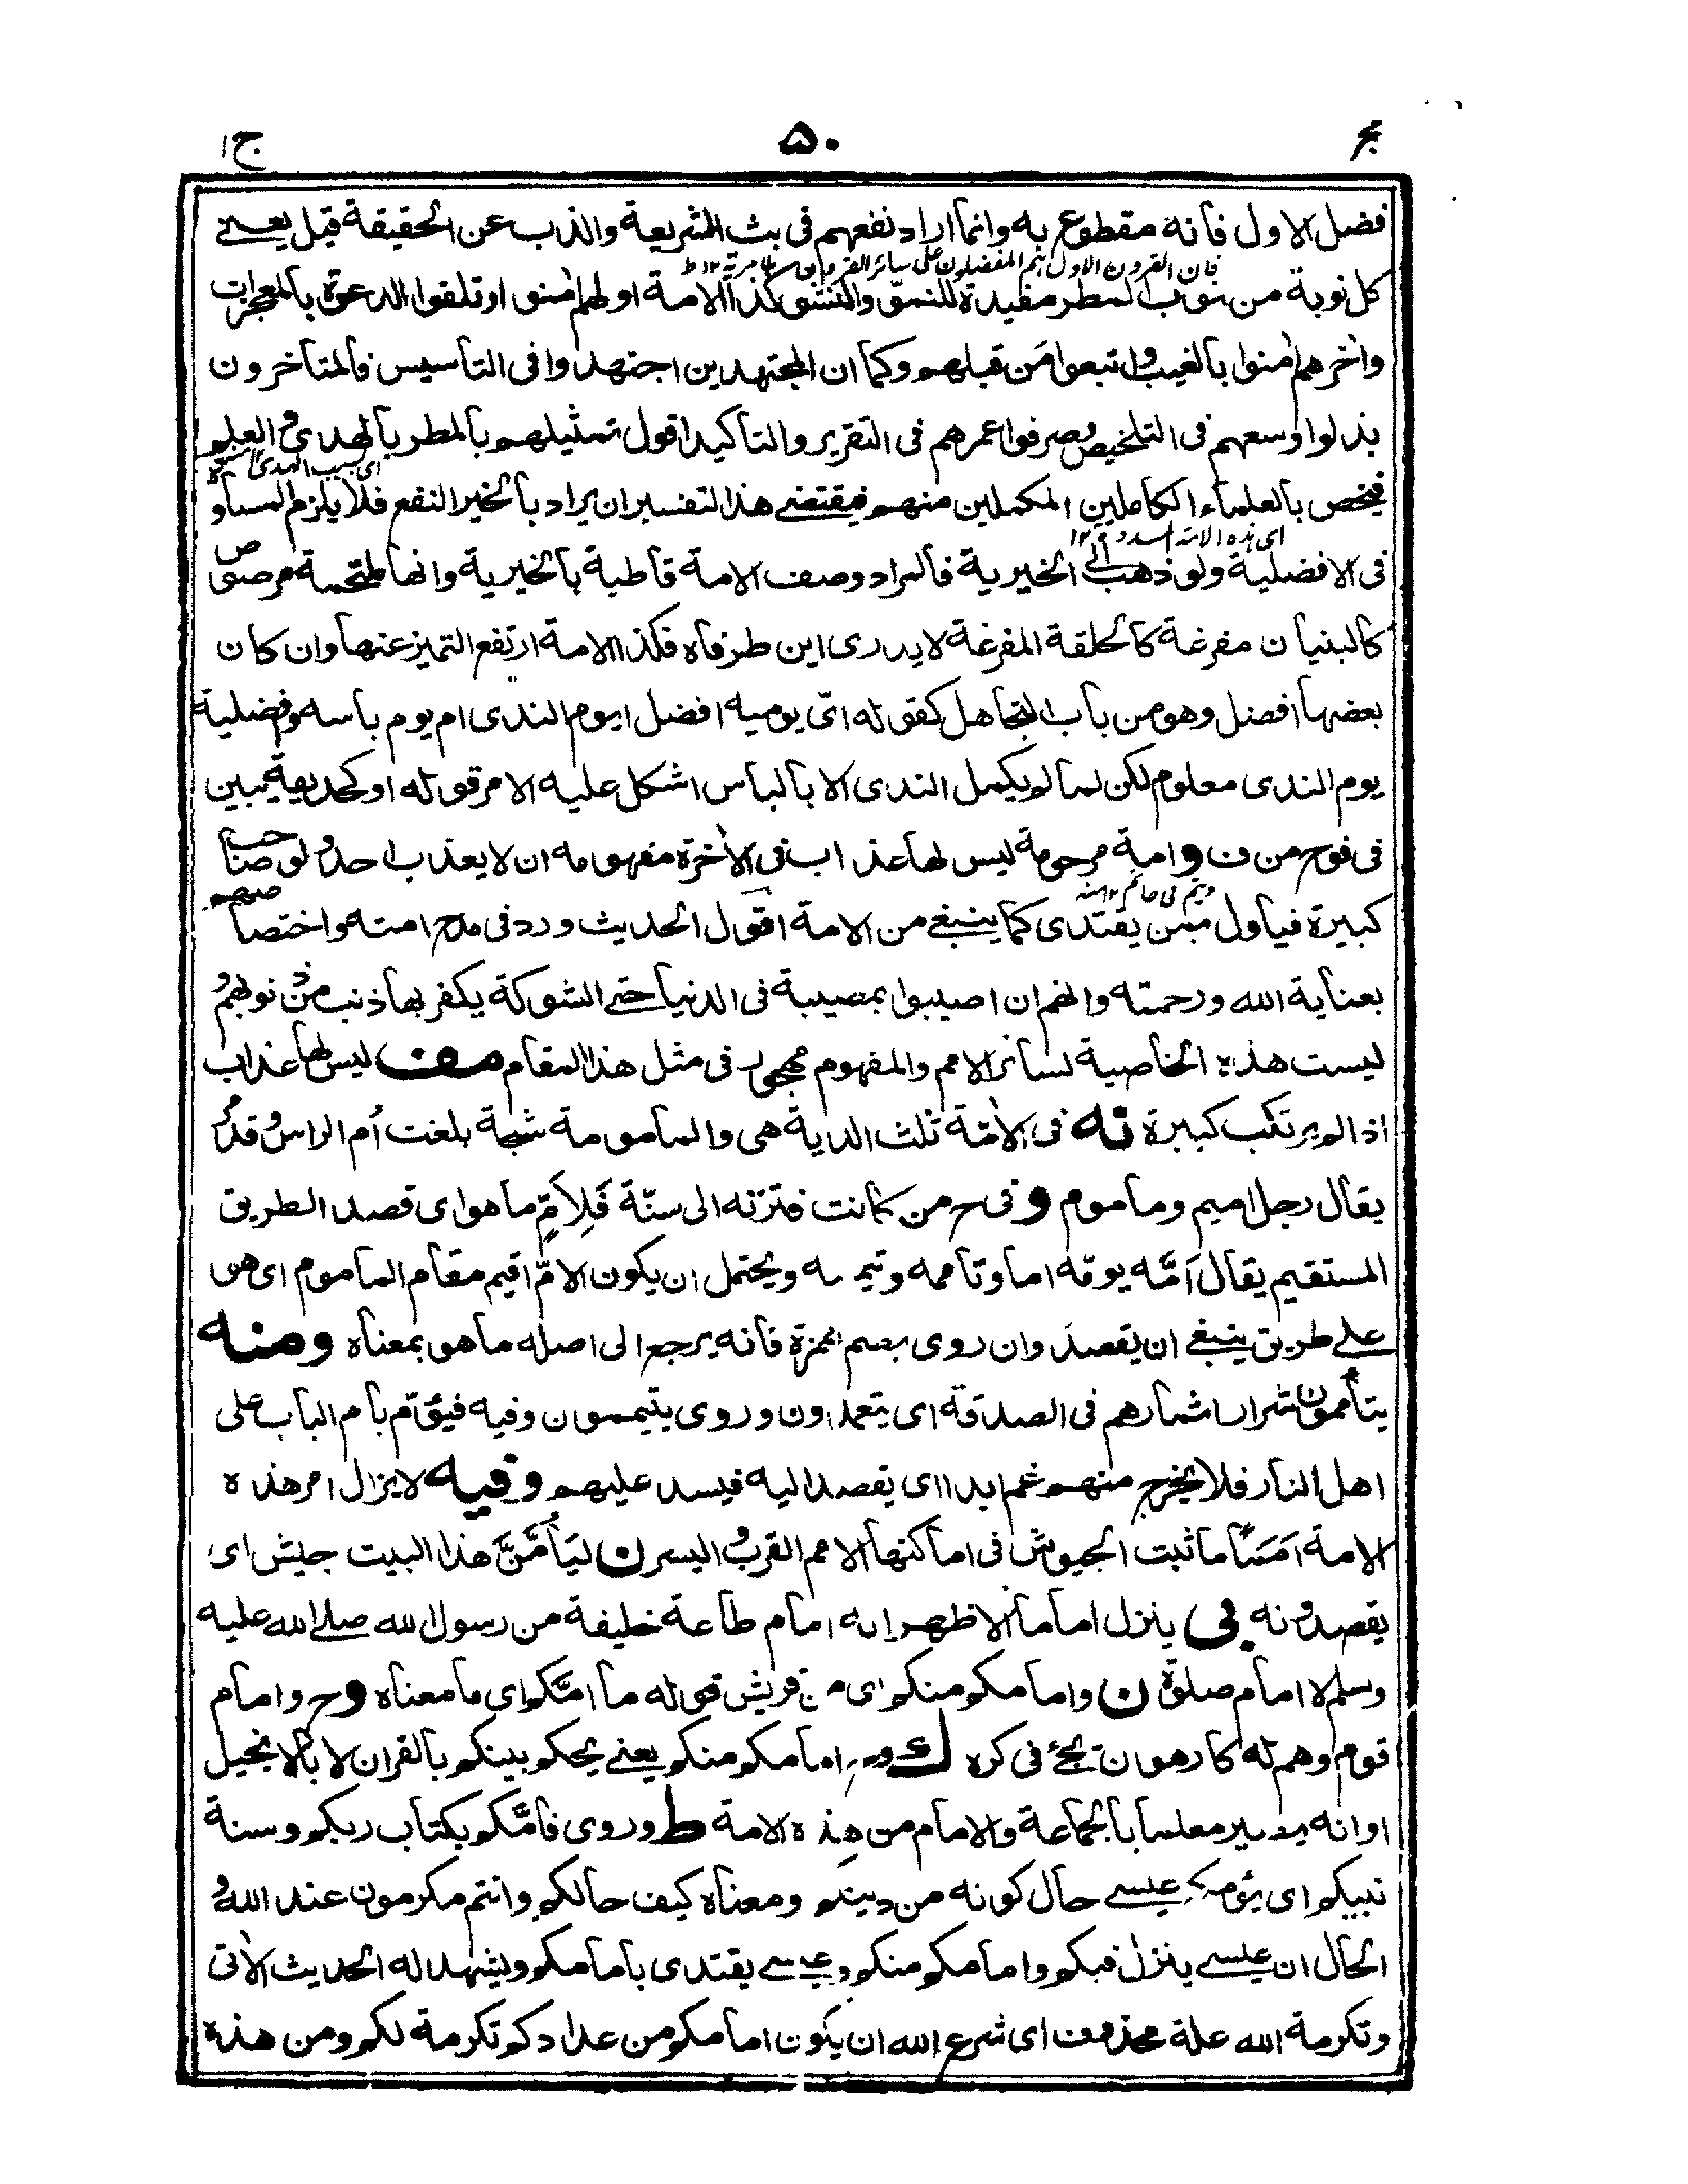 مجر ٥٠ ج١
فضل الاول فانه مقطوع به وانما اراد نفعهم فى بث الشريعة والذب عن الحقيقة قيل يعنى
فان القرون الاول هم المفضلون على سائر القرون
كل نوبة من نوب المطر مفيدة للنمو والنشو كذا الامة اولهم اٰمنوا وتلقوا الدعوة بالمعجزات
واٰخرهم اٰمنوا بالغيب واتبعوا مَن قبلهم وكما ان المجتهدين اجتهدوا فى التاسيس فالمتاخرون
بذلوا وسعهم فى التلخيص وصرفوا عمرهم فى التقرير والتاكيد اقول تمثيلهم بالمطر بالهدى والعلم
اى بسبب الهدى
فيخص بالعلماء الكاملين المكملين منهم فيقتضى هذا التفسير ان يراد بالخير النفع فلا يلزم المساواة
اى هذه الامة
فى الافضلية ولو ذهب الى الخيرية فالمراد وصف الامة قاطبة بالخيرية وانها ملتحمة مرصوص
كالبنيان مفرغة كالحلقة المفرغة لا يدرى اين طرفاه فكذا الامة ارتفع التميز عنها وان كان
بعضها افضل وهو من باب التجاهل كقوله اىّ يوميه افضل ايوم الندى ام يوم باسه وفضلية
يوم الندى معلوم لكن لما لم يكمل الندى الا بالباس اشكل عليه الامر قوله او كحديقة يبين
فى فوج من ف و امة مرحومة ليس لها عذاب فى الاٰخرة مفهومه ان لا يعذب احد ولو صاحب
كبيرة فياول بمن يقتدى كما ينبغى من الامة اقول الحديث ورد فى مدح امته واختصاصهم
بعناية الله ورحمته وانهم ان اصيبوا بمصيبة فى الدنيا حتى الشوكة يكفر بها ذنب من ذنوبهم و
ليست هذه الخاصية لسائر الامم والمفهوم مهجور فى مثل هذا المقام مف ليس لها عذاب
اذا لم يرتكب كبيرة نه فى الاٰمّة ثلث الدية هى والمامومة شجة بلغت اُم الراس وقد مر
يقال رجل اميم وماموم و فى ح من كانت فترته الى سنّة فَلِاَمٍّ ما هو اى قصد الطريق
المستقيم يقال اَمَّه يومّه اما وتاممه وتيممه ويحتمل ان يكون الامّ اقيم مقام الماموم اى هو
على طريق ينبغى ان يقصد وان روى بضم همزة فانه يرجع الى اصله ما هو بمعناه ومنه
يتاممون شرار اثمارهم فى الصدقة اى يتعمدون وروى يتيممون وفيه فيؤمّ بام الباب على
اهل النار فلا يخرج منهم غم ابدا اى يقصد اليه فيسد عليهم وفيه لا يزال امر هذه
الامة اَمَمًا ما ثبت الجيوش فى اماكنها الامم القرب واليسر ن لَيَأُمَّنَّ هذا البيت جيش اى
يقصدونه بى ينزل اماما الاظهر انه امام طاعة خليفة من رسول الله صلى الله عليه
وسلم لا امام صلوة ن وامامكم منكم اى من قريش قوله ما امّكم اى ما معناه وح وامام
قوم وهم له كارهون يجئ فى كره ك وح امامكم منكم يعنى يحكم بينكم بالقران لا بالانجيل
او انه يصير معلما بالجماعة والامام من هذه الامة ط وروى فامَّكم بكتاب ربكم وسنة
نبيكم اى يؤمكم عيسى حال كونه من دينكم ومعناه كيف حالكم وانتم مكرمون عند الله و
الحال ان عيسى ينزل فيكم وامامكم منكم وعيسى يقتدى بامامكم ويشهد له الحديث الاٰتى
وتكرمة الله علة محذوف اى شرع الله ان يكون امامكم من عدادكم تكرمة لكم ومن هذه